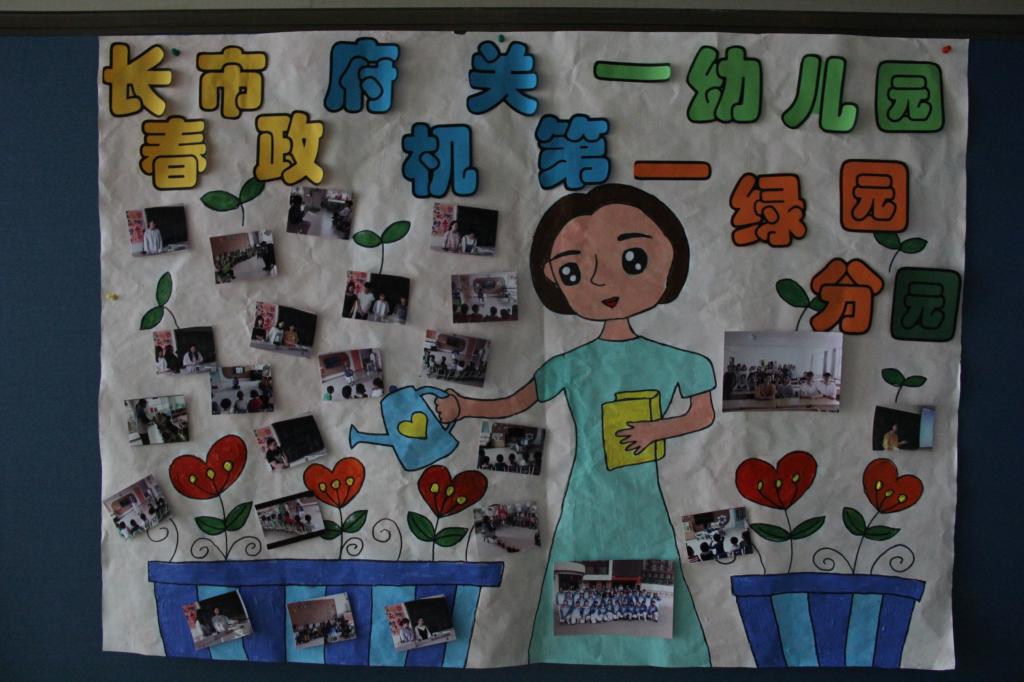 长春市政府机关第一幼儿园
一绿园分园